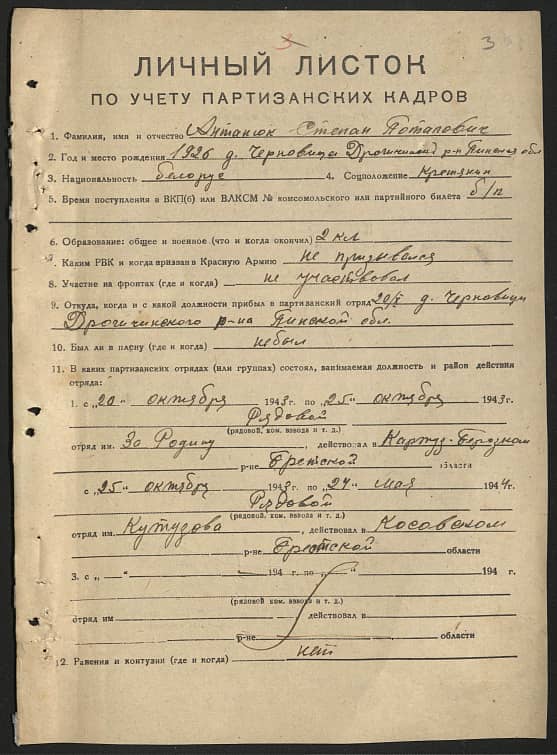 3 3
ЛИЧНЫЙ ЛИСТОК
ПО УЧЕТУ ПАРТИЗАНСКИХ КАДРОВ
1. Фамилия, имя и отчество Антанюк Степан Потапович
2. Год и место рождения 1926 д. Черновицы Дрогичинский р-н Пинской обл
3. Национальность белорус 4. Соцположение Крестянин
5. Время поступления в ВКП(б) или ВЛКСМ № комсомольского или партийного билета б/п
6. Образование: общее и военное (что и когда окончил) 2 кл
7. Каким РВК и когда призван в Красную Армию не призывался
8. Участие на фронтах (где и когда) не участвовал
9. Откуда, когда и с какой должности прибыл в партизанский отряд 20/X д. Черновицы
Дрогичинского р-на Пинской обл.
10. Был ли в плену (где и когда) небыл
11. В каких партизанских отрядах (или группах) состоял, занимаемая должность и район действия
отряда:
1. с „20“ октября 1943 г. по „25“ октября 1943 г.
Рядовой
(рядовой, ком. взвода и т. д.)
отряд им. За Родину, действовал в Картуз-Березком
р-не Брестской области
с „25“ октября 1943 г. по „24“ мая 1944 г.
Рядовой
(рядовой, ком. взвода и т. д.)
отряд им. Кутузова, действовал в Косовском
р-не Брестской области
3. с „ “ 194 г. по „ “ 194 г.
(рядовой, ком. взвода и т. д.)
отряд им действовал в
р-не области
12. Ранения и контузии (где и когда) нет